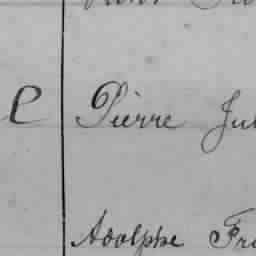 e Pierre Ju
Adolphe Fr